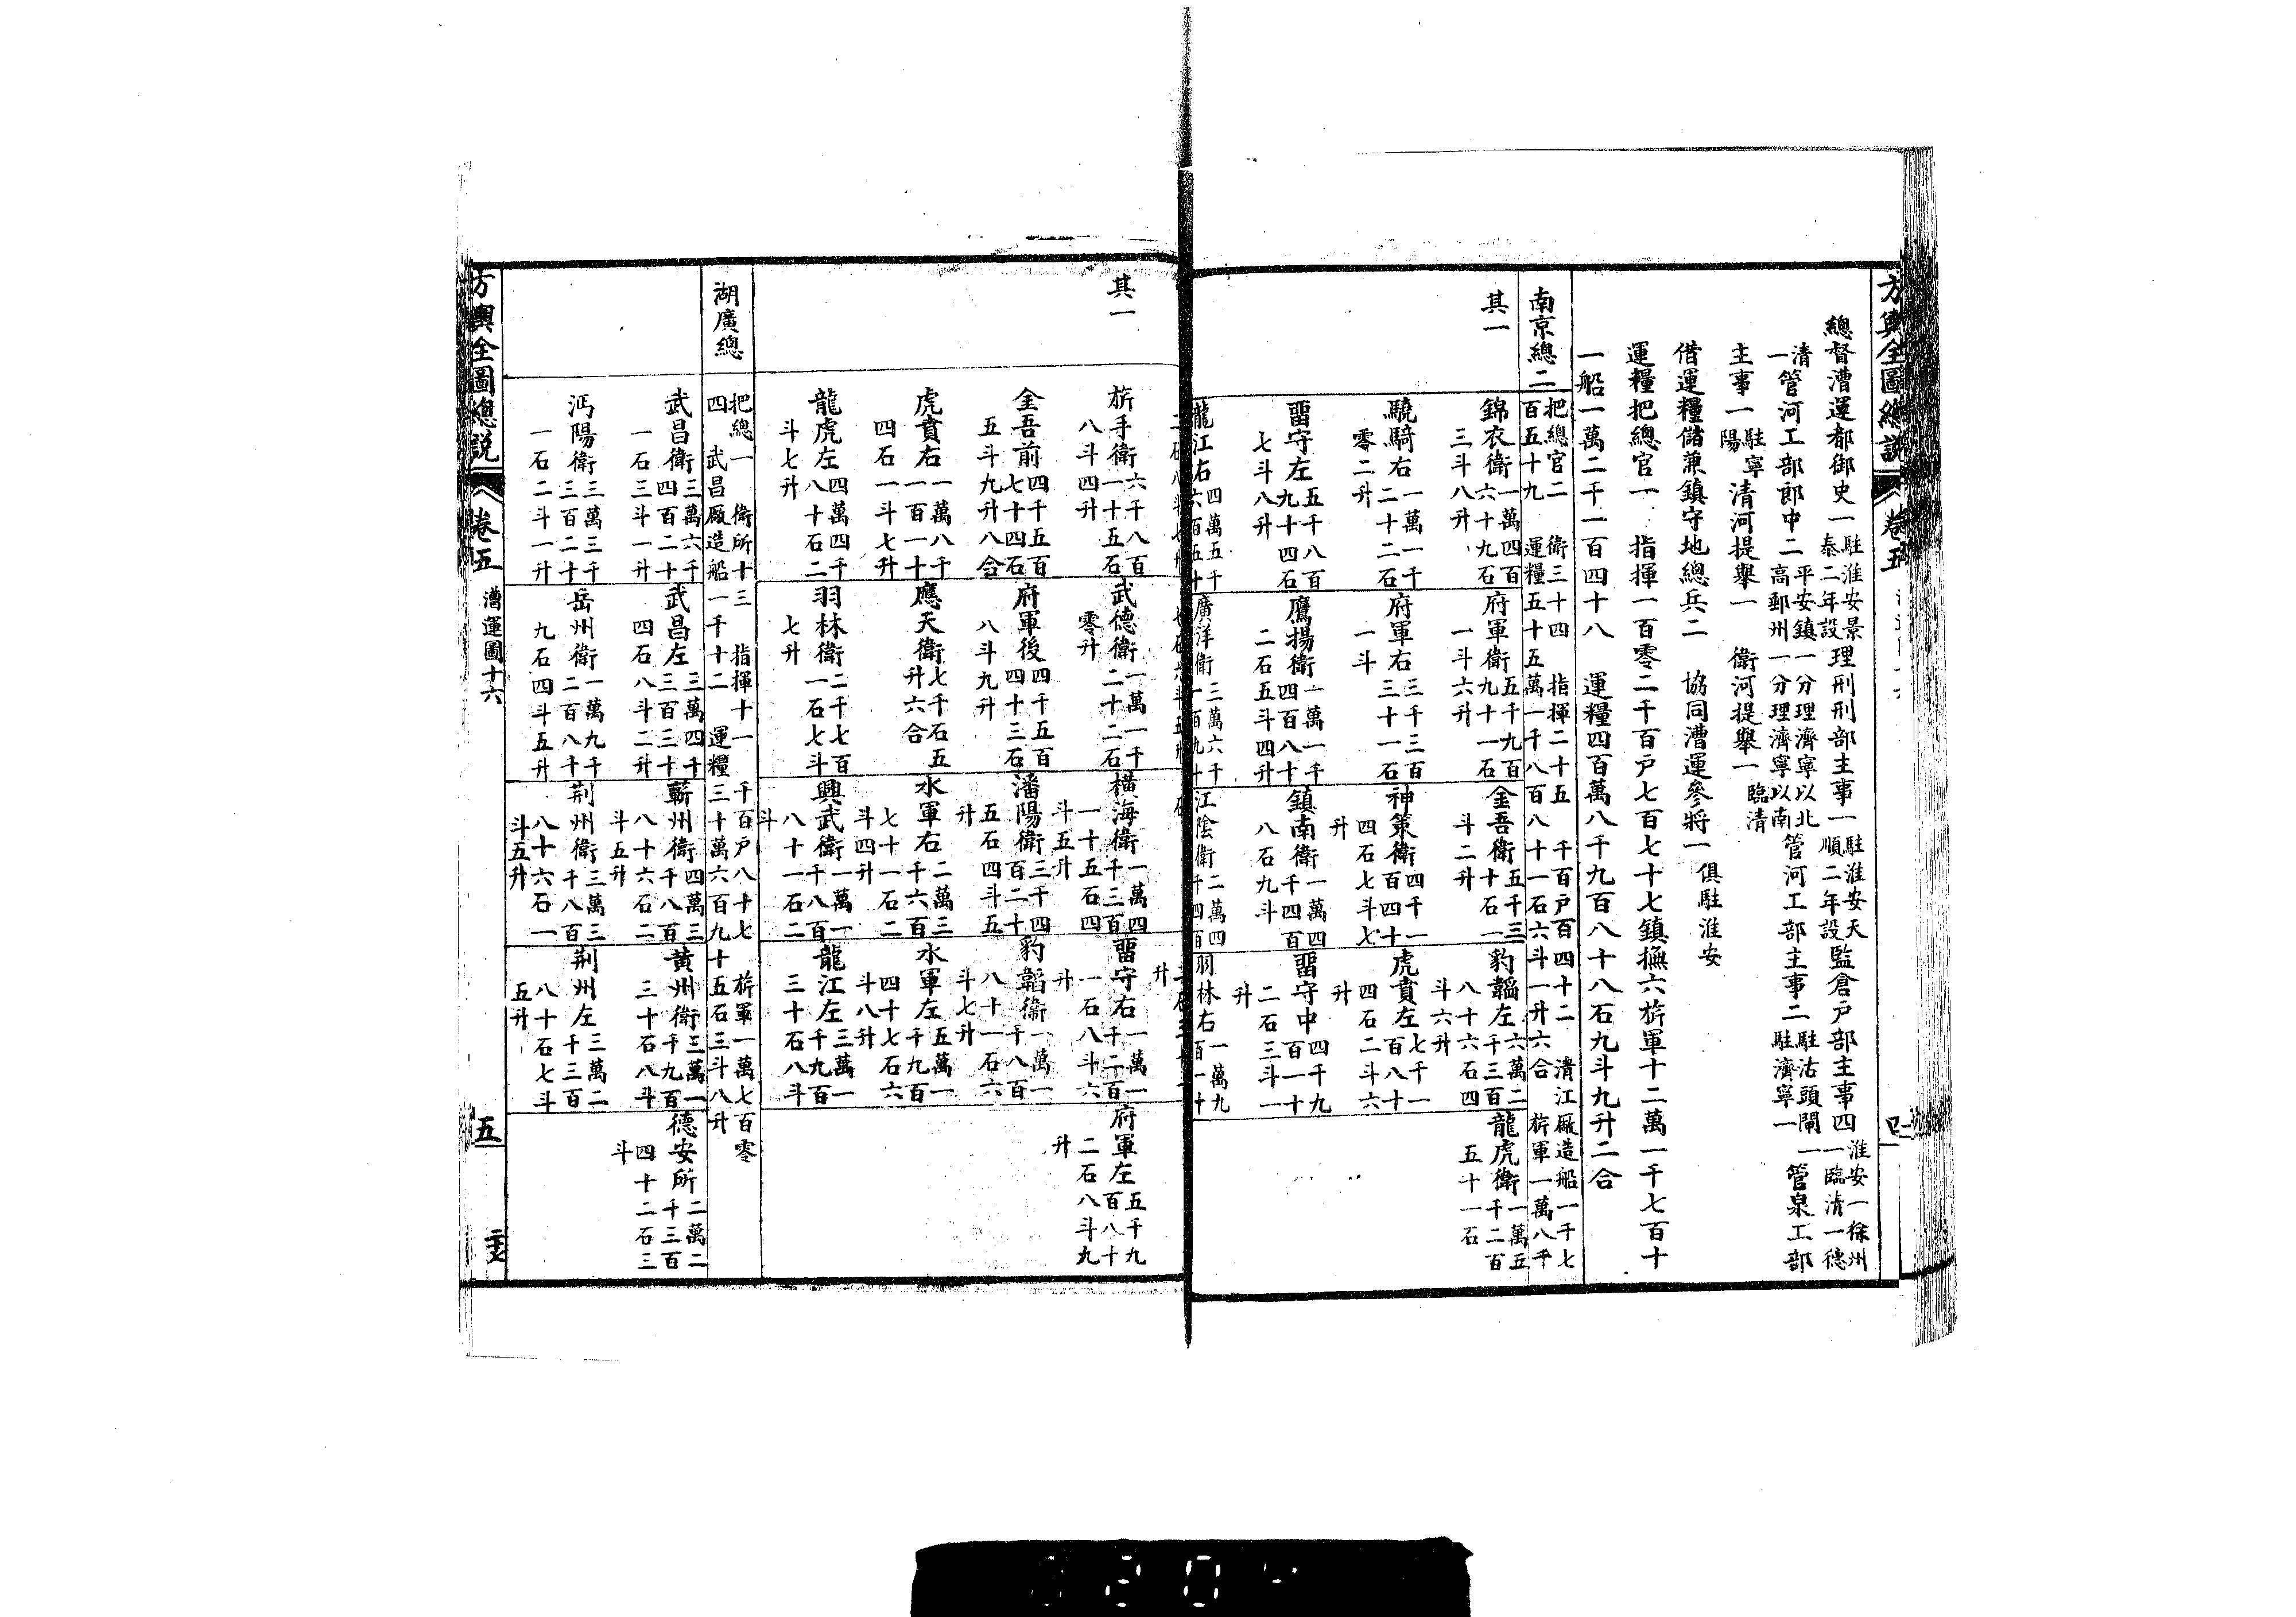 方輿全圖總說
卷五
總督漕運都御史一駐淮安景泰二年設理刑刑部主事一駐淮安天順二年設監倉戶部主事四淮安一徐州一臨清一德
清一管河工部郎中二平安鎮一分理濟寧以北高郵州一分理濟寧以南管河工部主事二駐沽頭閘一駐濟寧一管泉工部
主事一駐寧陽清河提舉一 衛河提舉一臨清
借運糧儲兼鎮守地總兵二 協同漕運參將一俱駐淮安
運糧把總官一 指揮一百零二千百戶七百七十七鎮撫六旂軍十二萬一千七百十
一船一萬二千一百四十八 運糧四百萬八千九百八十八石九斗九升二合
南京總二
把總官二 衛三十四 指揮二十五 千百戶百四十二 清江厰造船一千七
百五十九 運糧五十五萬一千八百八十一石六斗一升六合 旂軍一萬八千
其一
錦衣衛一萬四百六十九石三斗八升
府軍衛五千九百九十一石一斗六升
金吾衛五千三十石一斗二升
豹韜左六萬二千三百八十六石四斗六升
龍虎衛一萬五千二百五十一石
驍騎右一萬一千二十二石零二升
府軍右三千三百三十一石一斗
神策衛四千一百四十四石七斗七升
虎賁左七千一百八十四石二斗六升
畱守左五千八百九十四石七斗八升
鷹揚衛一萬一千四百八十二石五斗四升
鎮南衛一萬四千四百八石九斗
畱守中四千九百一十二石三斗一升
龍江右四萬五千六百五十
廣洋衛三萬六千一百九十
江陰衛二萬四千四百
羽林右一萬九百一十
其一
旂手衛六千八百一十五石八斗四升
武德衛一萬一千二十二石零升
橫海衛一萬四千三百一十五石四斗五升
畱守右一萬一千二百一石八斗六升
府軍左五千九百八十二石八斗九升
金吾前四千五百七十四石五斗九升八合
府軍後四千五百四十三石八斗九升
瀋陽衛三千四百二十五石四斗五升
豹韜衛一萬一千八百八十一石六斗七升
虎賁右一萬八千一百一十四石一斗七升
應天衛七千石五升六合
水軍右二萬三千六百七十一石二斗四升
水軍左五萬一千九百四十七石六斗八升
龍虎左四萬四千八十石二斗七升
羽林衛二千七百一石七斗七升
興武衛一萬一千八百八十一石二斗
龍江左三萬一千九百三十石八斗
湖廣總
把總一 衛所十三 指揮十一 千百戶八十七 旂軍一萬七百零
四 武昌厰造船一千十二 運糧三十萬六百九十五石三斗八升
武昌衛三萬六千四百二十一石三斗一升
武昌左三萬四千三百三十四石八斗二升
蘄州衛四萬三千八百八十六石二斗五升
黃州衛三萬一千九百三十石八斗
德安所二萬二千三百四十二石三斗
沔陽衛三萬三千三百二十一石二斗一升
岳州衛一萬九千二百八十九石四斗五升
荆州衛三萬三千八百八十六石一斗五升
荆州左三萬二千三百八十石七斗五升
方輿全圖總說
卷五
漕運圖十六
五